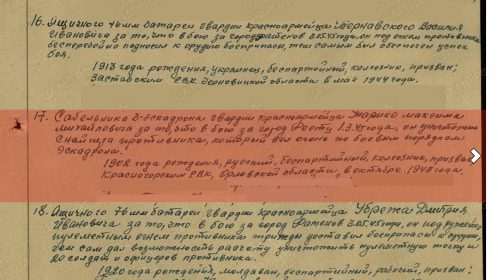 16. Ящичного 76мм батареи гвардии красноармейца Тернавского Василия
Ивановича за то, что в бою за город 3.05.45 года, он под огнем противника
бесперебойно подносил к орудию боеприпасы, тем самым был обеспечен успех
боя.
1913 года рождения, украинец, беспартийный, колхозник, призван;
Заставским РВК, Черновицкой области в мае 1944 года.
17. Сабельника 3-эскадрона гвардии красноармейца Жарико Максима
Михайловича за то, что в бою за город 1.3.45 года, он уничтожил
снайпера противника, который вел огонь по боевым порядкам
эскадрона.
1908 года рождения, русский, беспартийный, колхозник, призван
Красногорским РВК, Орловской области, в октябре 1943 года.
18. Ящичного 76мм батареи гвардии красноармейца Дмитрия
Ивановича за то, что в бою за город 3.05.45 года, он под ружейно
пулеметным огнем противника трижды доставил боеприпасы к орудию,
чем сам дал возможность расчету уничтожить пулеметную точку и
20 солдат и офицеров противника.
1920 года рождения, молдаван, беспартийный, рабочий, призван;